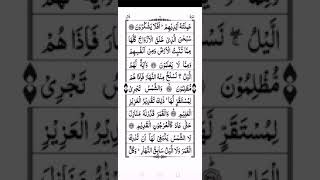 عَمِلَتْهُ اَيْدِيْهِمْ ؕ اَفَلَا يَشْكُرُوْنَ
سُبْحٰنَ الَّذِيْ خَلَقَ الْاَزْوَاجَ كُلَّهَا
مِمَّا تُنْۢبِتُ الْاَرْضُ وَمِنْ اَنْفُسِهِمْ
وَمِمَّا لَا يَعْلَمُوْنَ وَاٰيَةٌ لَّهُمُ
الَّيْلُ ۖ نَسْلَخُ مِنْهُ النَّهَارَ فَاِذَا هُمْ
مُّظْلِمُوْنَ وَالشَّمْسُ تَجْرِيْ
لِمُسْتَقَرٍّ لَّهَا ؕ ذٰلِكَ تَقْدِيْرُ الْعَزِيْزِ
الْعَلِيْمِ وَالْقَمَرَ قَدَّرْنٰهُ مَنَازِلَ
حَتّٰى عَادَ كَالْعُرْجُوْنِ الْقَدِيْمِ
لَا الشَّمْسُ يَنْۢبَغِيْ لَهَاۤ اَنْ تُدْرِكَ
الْقَمَرَ وَلَا الَّيْلُ سَابِقُ النَّهَارِ ؕ وَكُلٌّ